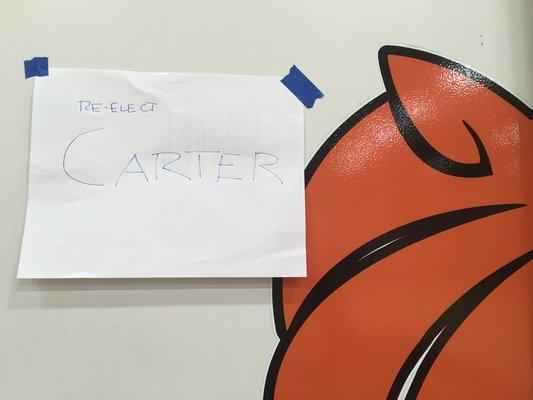 RE-ELECT
CARTER